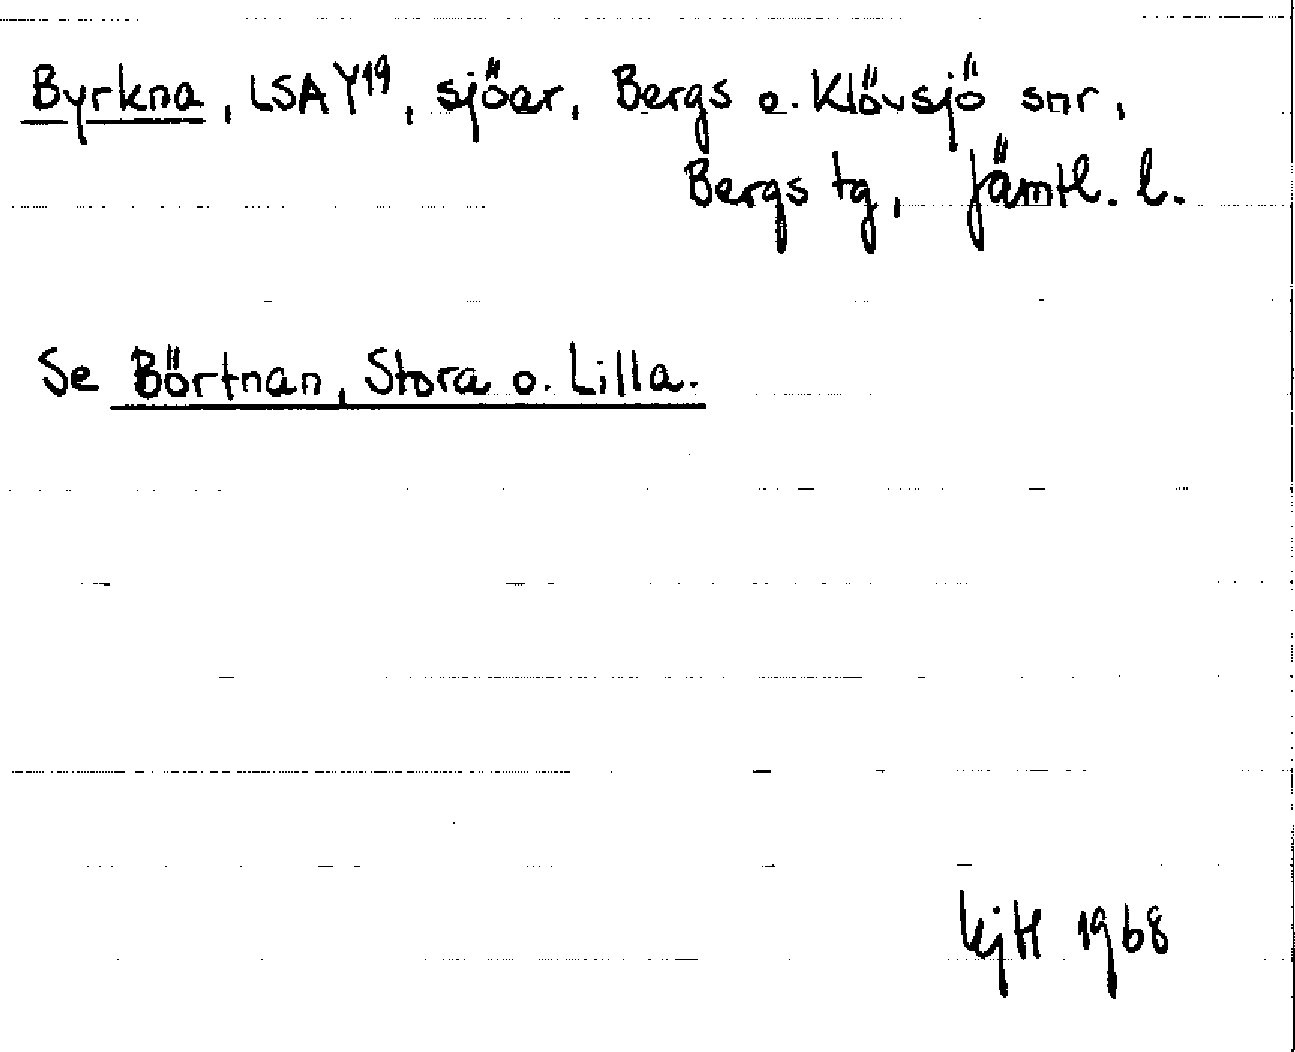 Byrkna, LSA Y19, sjöar, Bergs o. Klövsjö snr,
Bergs tg, Jämtl. l.
Se Börtnan, Stora o. Lilla.
1968